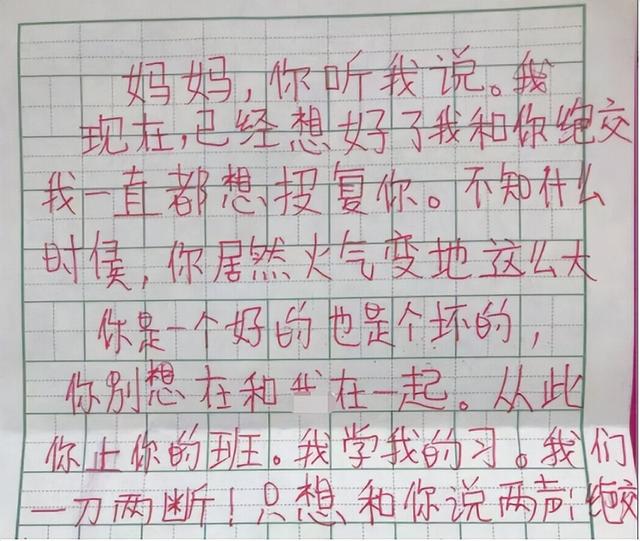 妈妈，你听我说。我
现在，已经想好了我和你绝交
我一直都想投复你。不知什么
时侯，你居然火气变地这么大
你是一个好的也是个坏的，
你别想在和 在一起。从此
你上你的班。我学我的习。我们
一刀两断！只想和你说两声：绝交